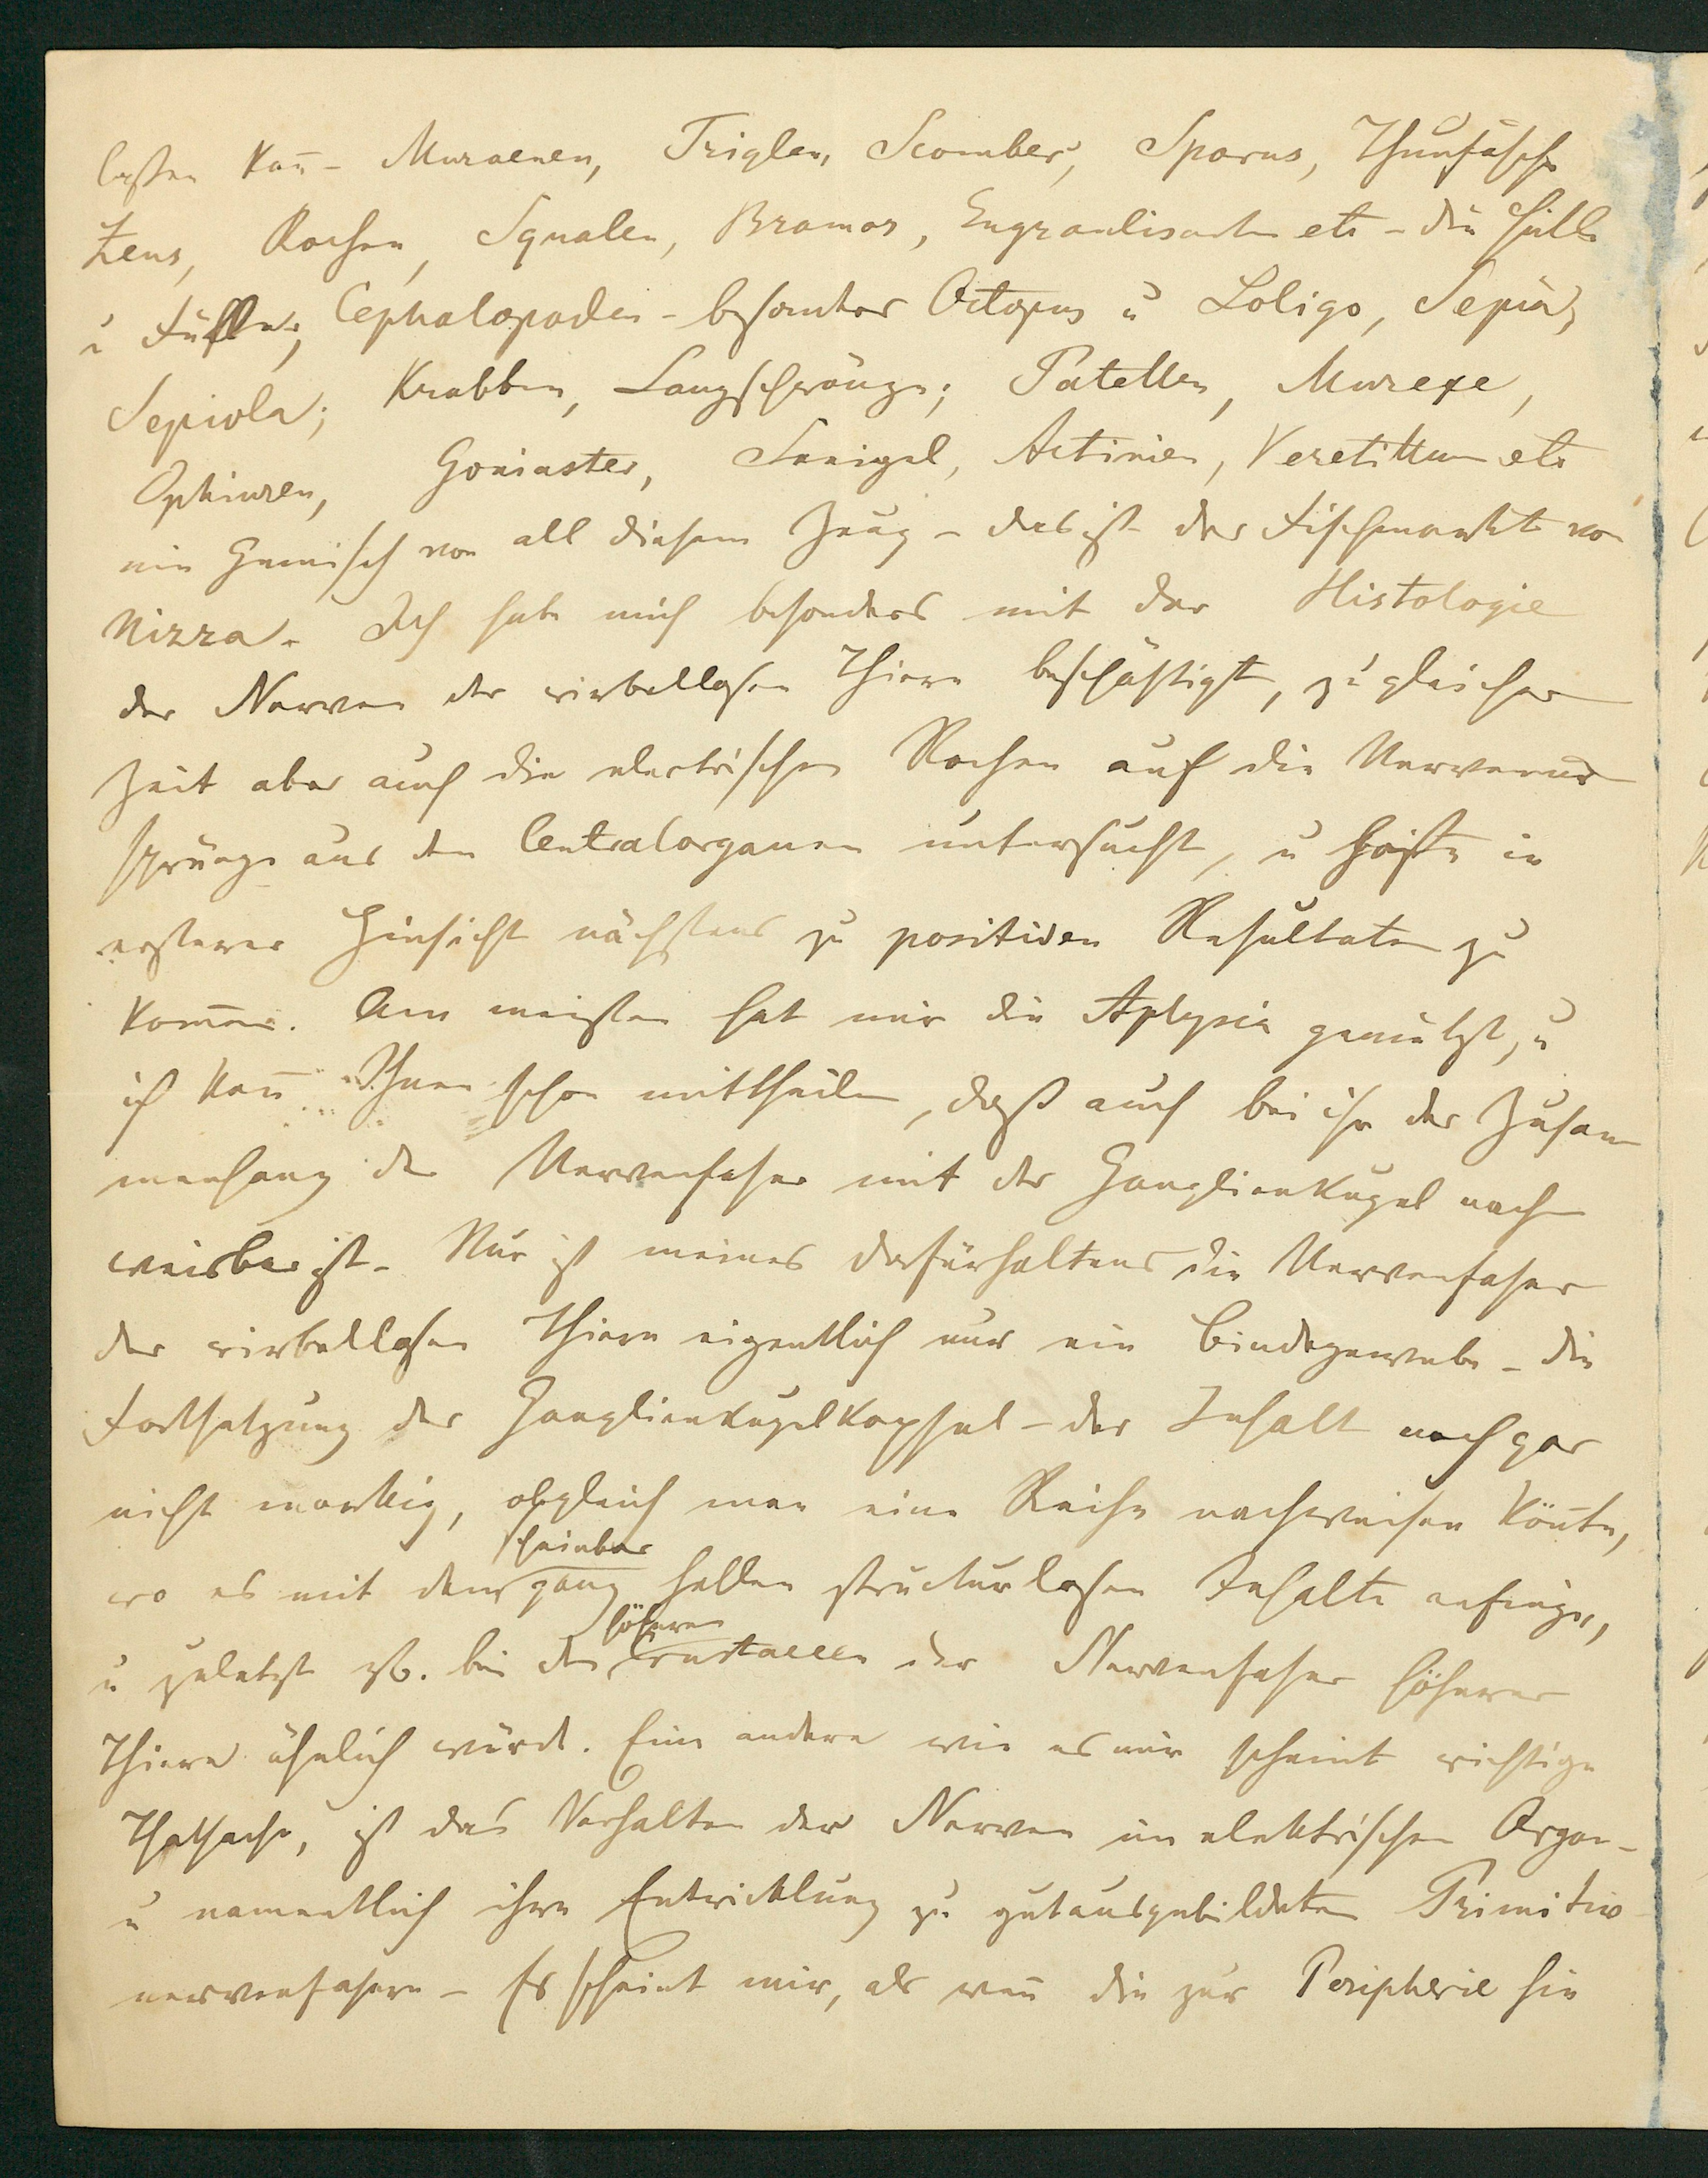 laßen kan̄ - Muraenen, Triglen, Scomber, Sparus, Thunfische
Zeus, Rochen, Squalen, Bramas, Engraulisarten etc - die Hülle
u Fülle; Cephalopoden - besonders Octopus u Loligo, Sepia,
Sepiola; Krabben, Langschwänze; Patellen, Murexe,
Ophiuren, Goniaster, Seeigel, Actinien, Veretillum etc
ein Gemisch von all diesem Zeug - das ist der Fischmarkt von
Nizza. Ich habe mich besonders mit der Histologie
der Nerven der wirbellosen Thiere beschäftigt, zu gleicher
Zeit aber auch die electrischen Rochen auf die Nervenur
sprünge aus den Centralorganen untersucht, u hoffe in
ersterer Hinsicht nächstens zu positiven Resultaten zu
kom̄en. Am meisten hat mir die Aplysia genützt, u
ich kan̄ Ihnen schon mittheilen, daß auch bei ihr der Zusam
menhang der Nervenfaser mit der Ganglienkugel nach
weisbar ist. Nur ist meines dafürhaltens die Nervenfaser
der wirbellosen Thiere eigentlich nur ein Bindegewebe - die
Fortsetzung der Ganglienkugelkapsel - der Inhalt noch gar
nicht markig, obgleich man eine Reihe nachweisen kön̄te,
scheinbar
wo es mit dem ganz hellen structurlosen Inhalte anfinge,
höheren
u zuletzt zb. bei den Crustaceen der Nervenfaser höherer
Thiere ähnlich würde. Eine andere wie es mir scheint wichtige
Thatsache, ist das Verhalten der Nerven im elektrischen Organ -
u namentlich ihre Entwicklung zu gutausgebildeten Primitiv
nervenfasern - Es scheint mir, als wen̄ die zur Peripherie hin